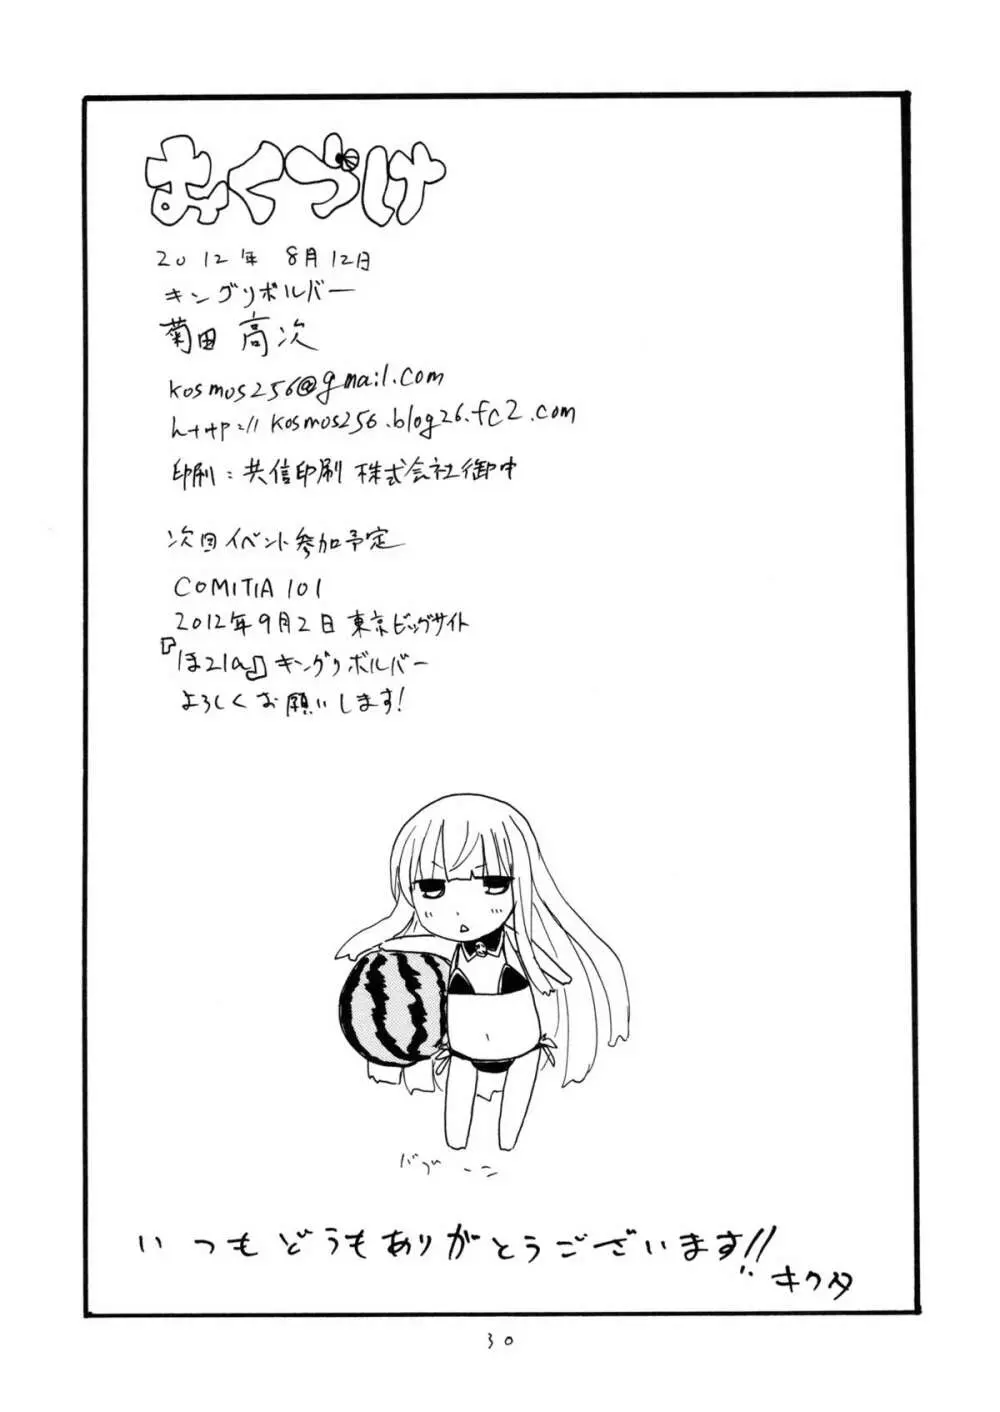 おくづけ
2012年 8月12日
キングリボルバー
菊田 高次
kosmos256@gmail.com
http://kosmos256.blog26.fc2.com
印刷:共信印刷 株式会社御中
次回イベント参加予定
COMITIA 101
2012年9月2日 東京ビッグサイト
『ほ21a』キングリボルバー
よろしくお願いします!
いつもどうもありがとうございます!!
キクタ
30